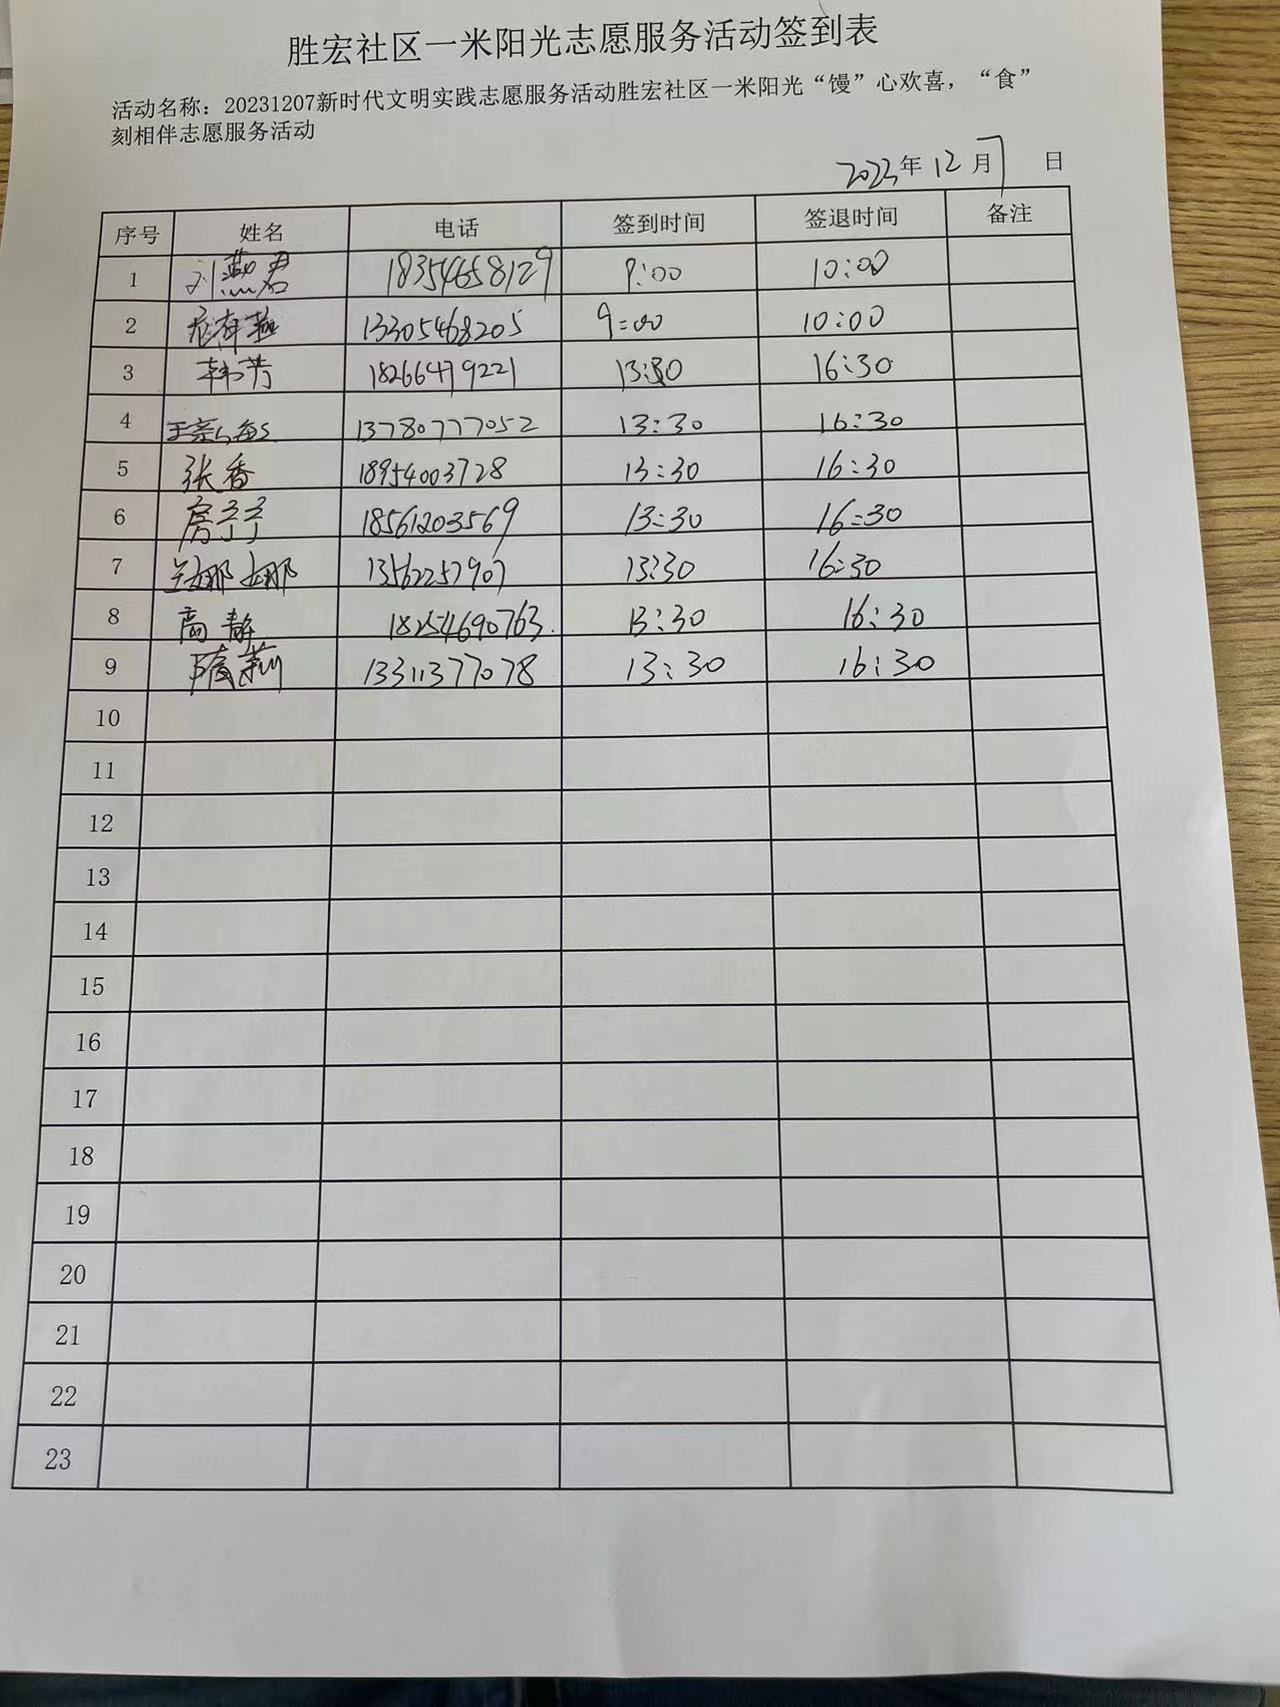 胜宏社区一米阳光志愿服务活动签到表
活动名称：20231207新时代文明实践志愿服务活动胜宏社区一米阳光“馒”心欢喜，“食”
刻相伴志愿服务活动
2023年12月7日
序号 姓名 电话 签到时间 签退时间 备注
1 刘燕君 18354658129 9:00 10:00
2 13305468205 9:00 10:00
3 韩芳 18266479221 13:30 16:30
4 13780777052 13:30 16:30
5 张香 18954003728 13:30 16:30
6 18561203569 13:30 16:30
7 兰娜娜 13562257907 13:30 16:30
8 高静 18254690763. 13:30 16:30
9 隋莉 13311377078 13:30 16:30
10
11
12
13
14
15
16
17
18
19
20
21
22
23